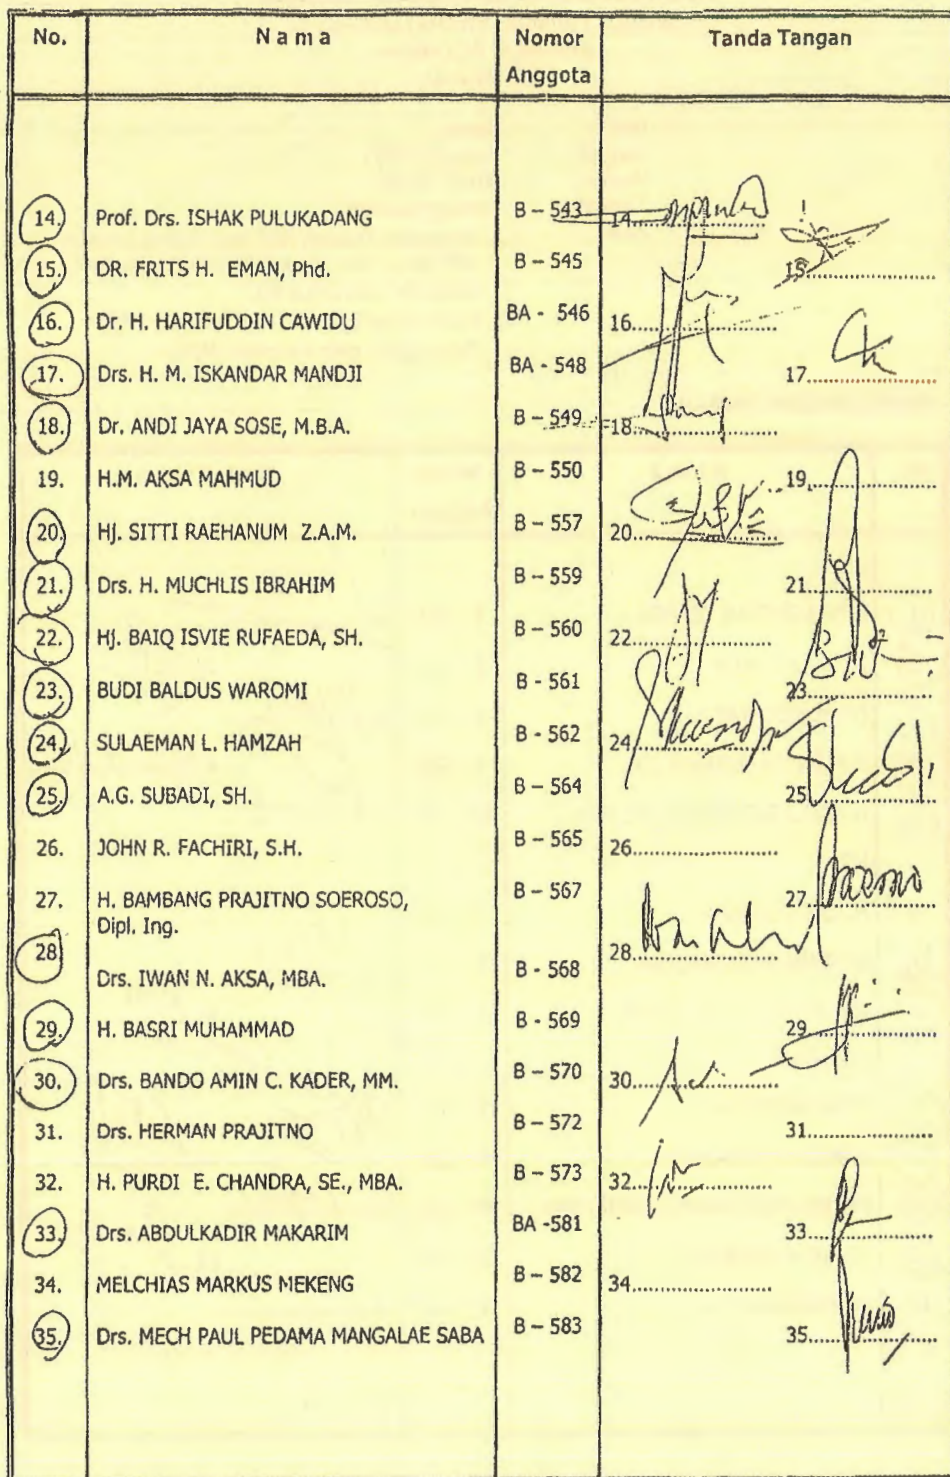 No. N a m a Nomor Anggota Tanda Tangan
14. Prof. Drs. ISHAK PULUKADANG B – 543 14
15. DR. FRITS H. EMAN, Phd. B – 545 15
16. Dr. H. HARIFUDDIN CAWIDU BA - 546 16
17. Drs. H. M. ISKANDAR MANDJI BA - 548 17
18. Dr. ANDI JAYA SOSE, M.B.A. B – 549 18
19. H.M. AKSA MAHMUD B – 550 19
20. Hj. SITTI RAEHANUM Z.A.M. B – 557 20
21. Drs. H. MUCHLIS IBRAHIM B – 559 21
22. Hj. BAIQ ISVIE RUFAEDA, SH. B – 560 22
23. BUDI BALDUS WAROMI B - 561 23
24. SULAEMAN L. HAMZAH B - 562 24
25. A.G. SUBADI, SH. B – 564 25
26. JOHN R. FACHIRI, S.H. B – 565 26
27. H. BAMBANG PRAJITNO SOEROSO, B – 567 27
Dipl. Ing.
28 Drs. IWAN N. AKSA, MBA. B - 568 28
29. H. BASRI MUHAMMAD B - 569 29
30. Drs. BANDO AMIN C. KADER, MM. B – 570 30
31. Drs. HERMAN PRAJITNO B – 572 31
32. H. PURDI E. CHANDRA, SE., MBA. B – 573 32
33. Drs. ABDULKADIR MAKARIM BA -581 33
34. MELCHIAS MARKUS MEKENG B – 582 34
35. Drs. MECH PAUL PEDAMA MANGALAE SABA B – 583 35